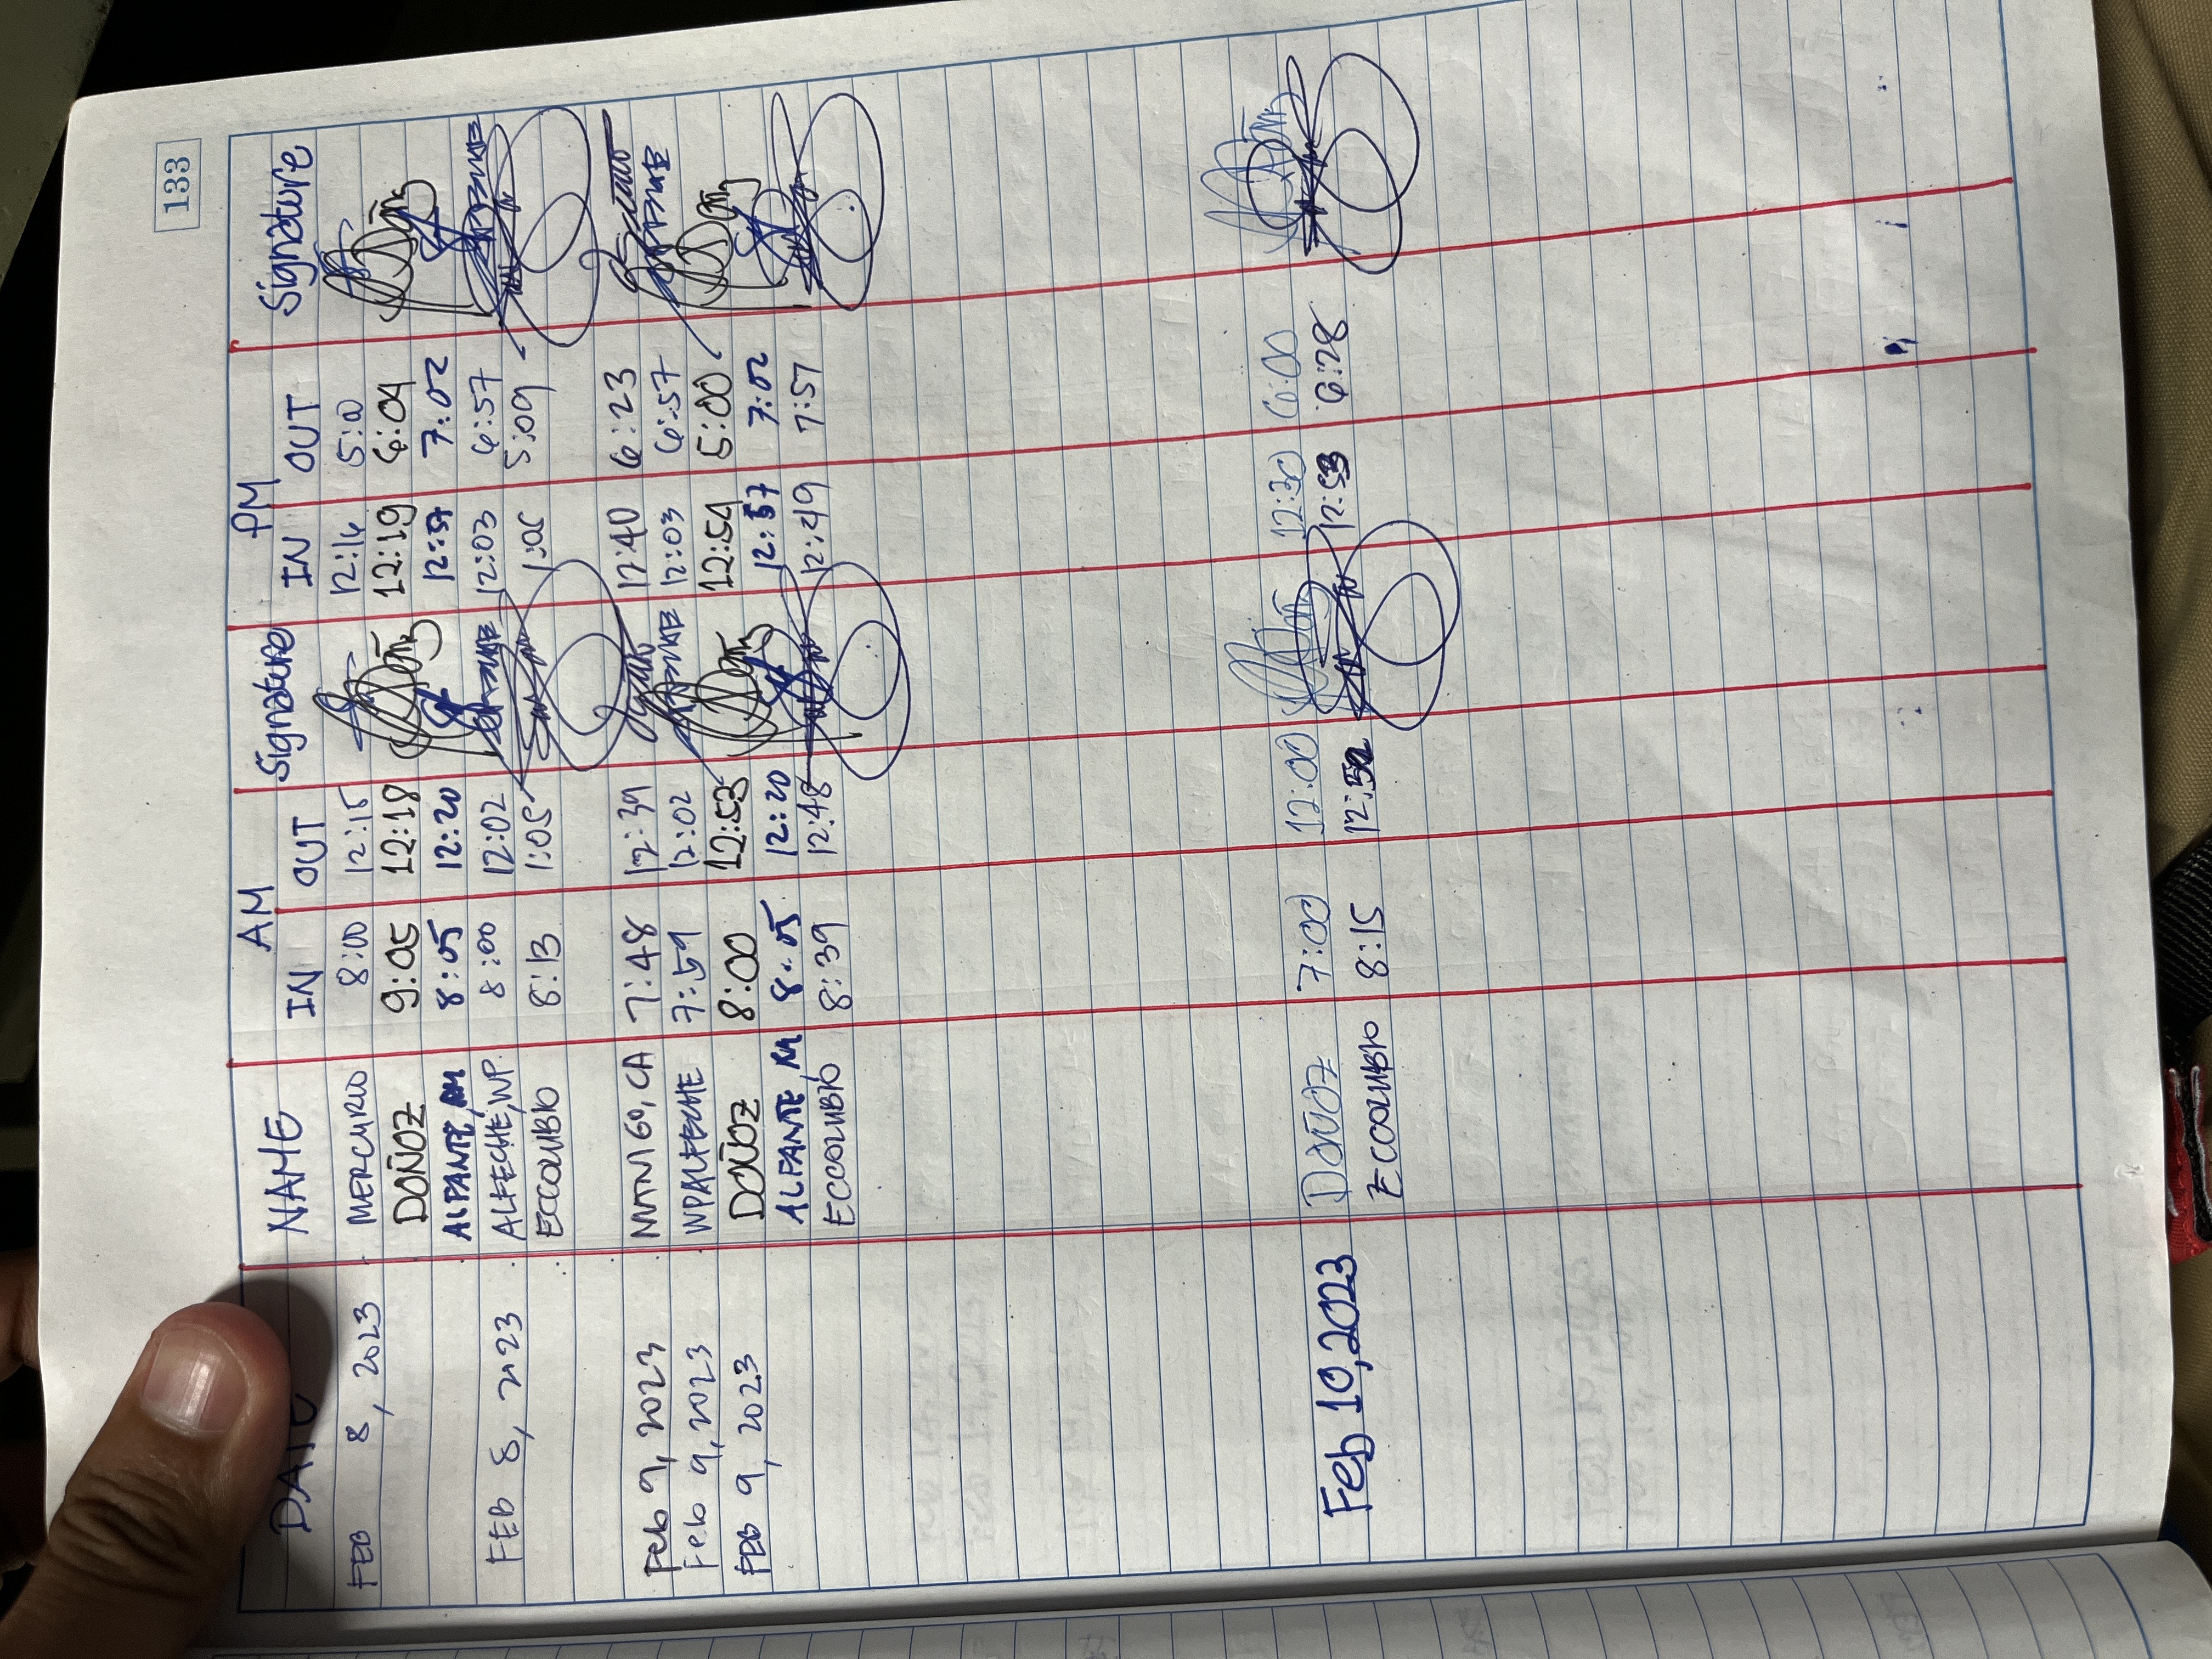 133
AM PM
NAME IN OUT Signature IN OUT Signature
FEB 8, 2023 MERCURIO 8:00 12:15 12:16 5:00
DOÑOZ 9:05 12:18 12:19 6:04
ALPANTE, RM 8:05 12:20 12:57 7:02
FEB 8, 2023 ALFECHE, WP. 8:00 12:02 12:03 6:57
ECCOLUBIO 8:13 1:05 1:06 5:09
Feb 9, 2023 7:48 12:39 12:40 6:23
Feb 9, 2023 WPALFECHE 7:59 12:02 12:03 6:57
FEB 9, 2023 DOÑOZ 8:00 12:53 12:54 5:00
ALPANTE, RM 8:05 12:20 12:57 7:02
ECCOLUBIO 8:39 12:48 12:49 7:57
Feb 10, 2023 DOÑOZ 7:00 12:00 12:30 6:00
ECCOLUBIO 8:15 12:52 12:53 6:28